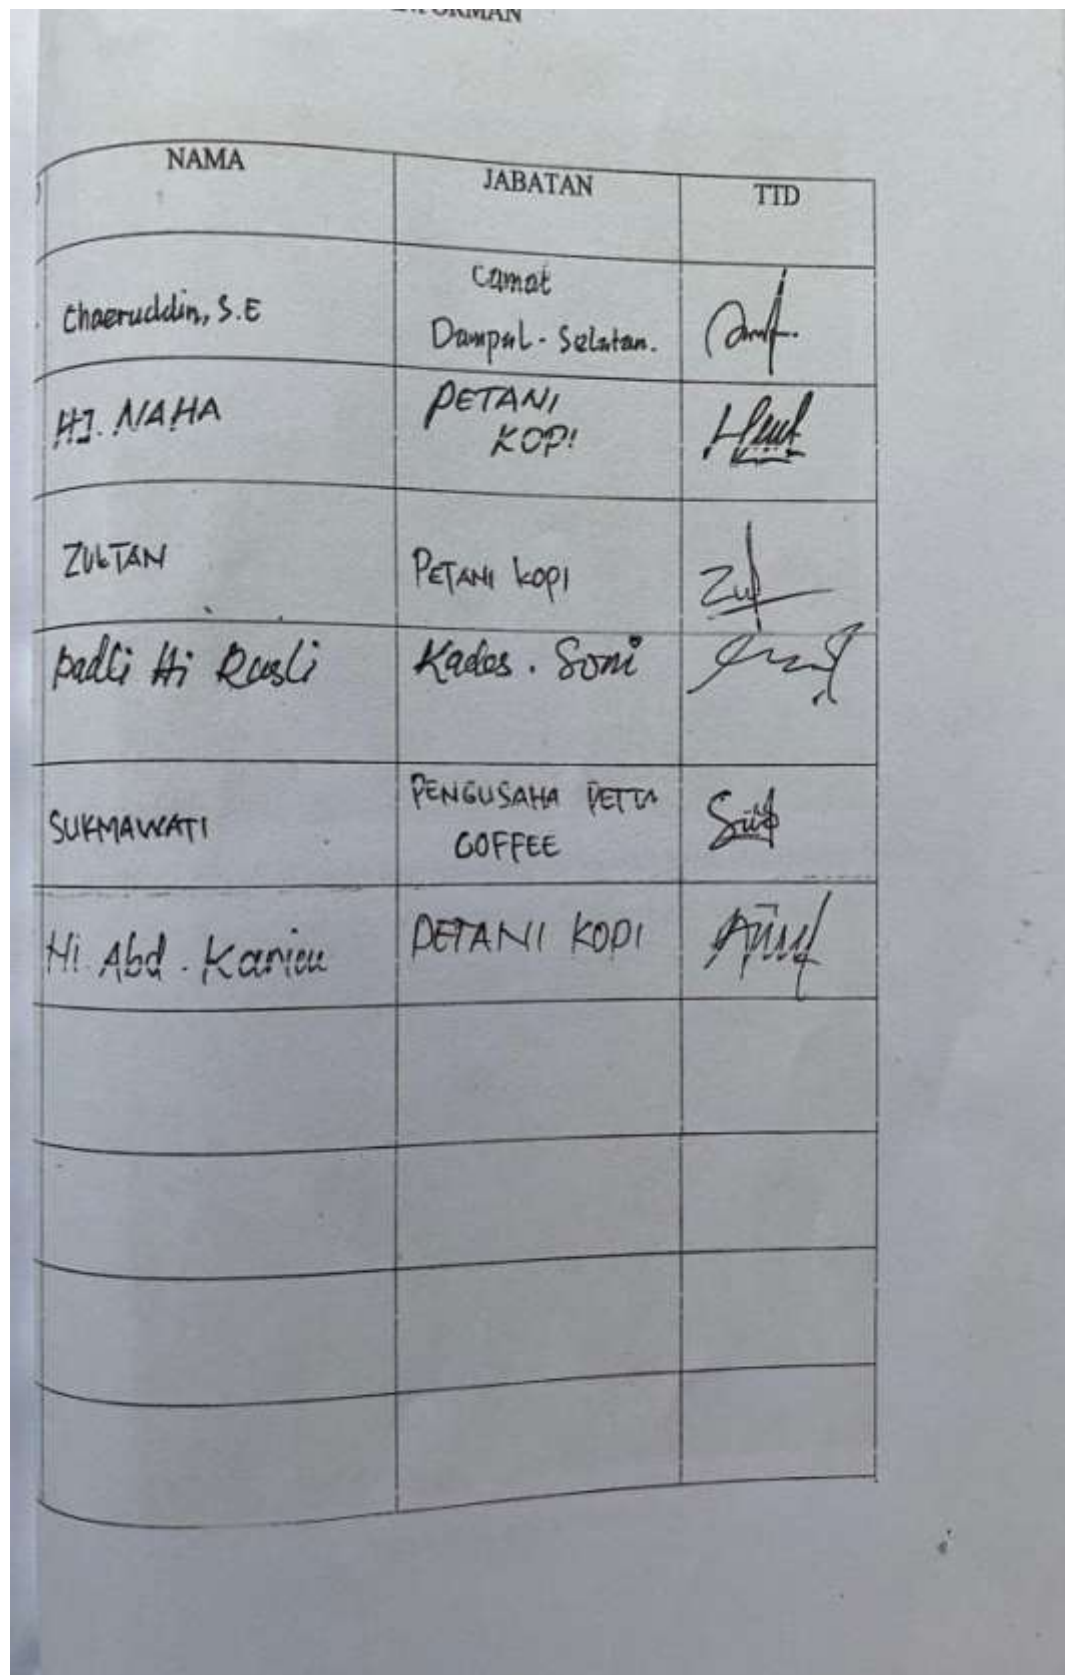 NAMA
JABATAN
TTD
Chaeruddin, S.E
Camat
Dampal - Selatan.
HJ. NAHA
PETANI
KOPI
ZULTAN
PETANI KOPI
Zul
Padli Hi Rusli
Kades . Soni
SUKMAWATI
PENGUSAHA PETTA
COFFEE
Hi. Abd . Karim
PETANI KOPI